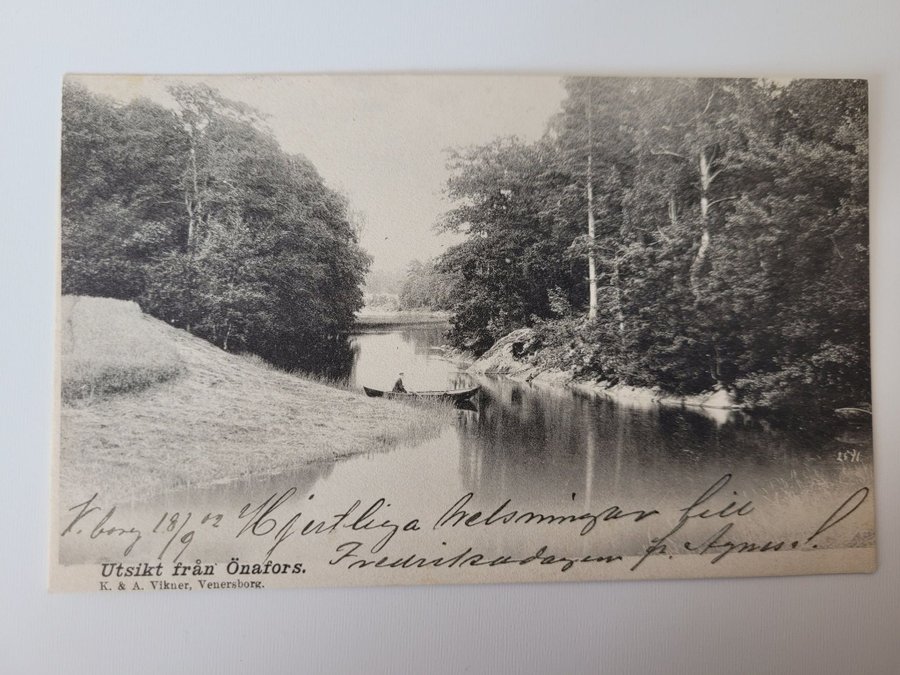 2571
V.borg 18/9 02 Hjertliga helsningar till
Fredriksdagen fr. Agnes L.
Utsikt från Önafors.
K. & A. Vikner, Venersborg.